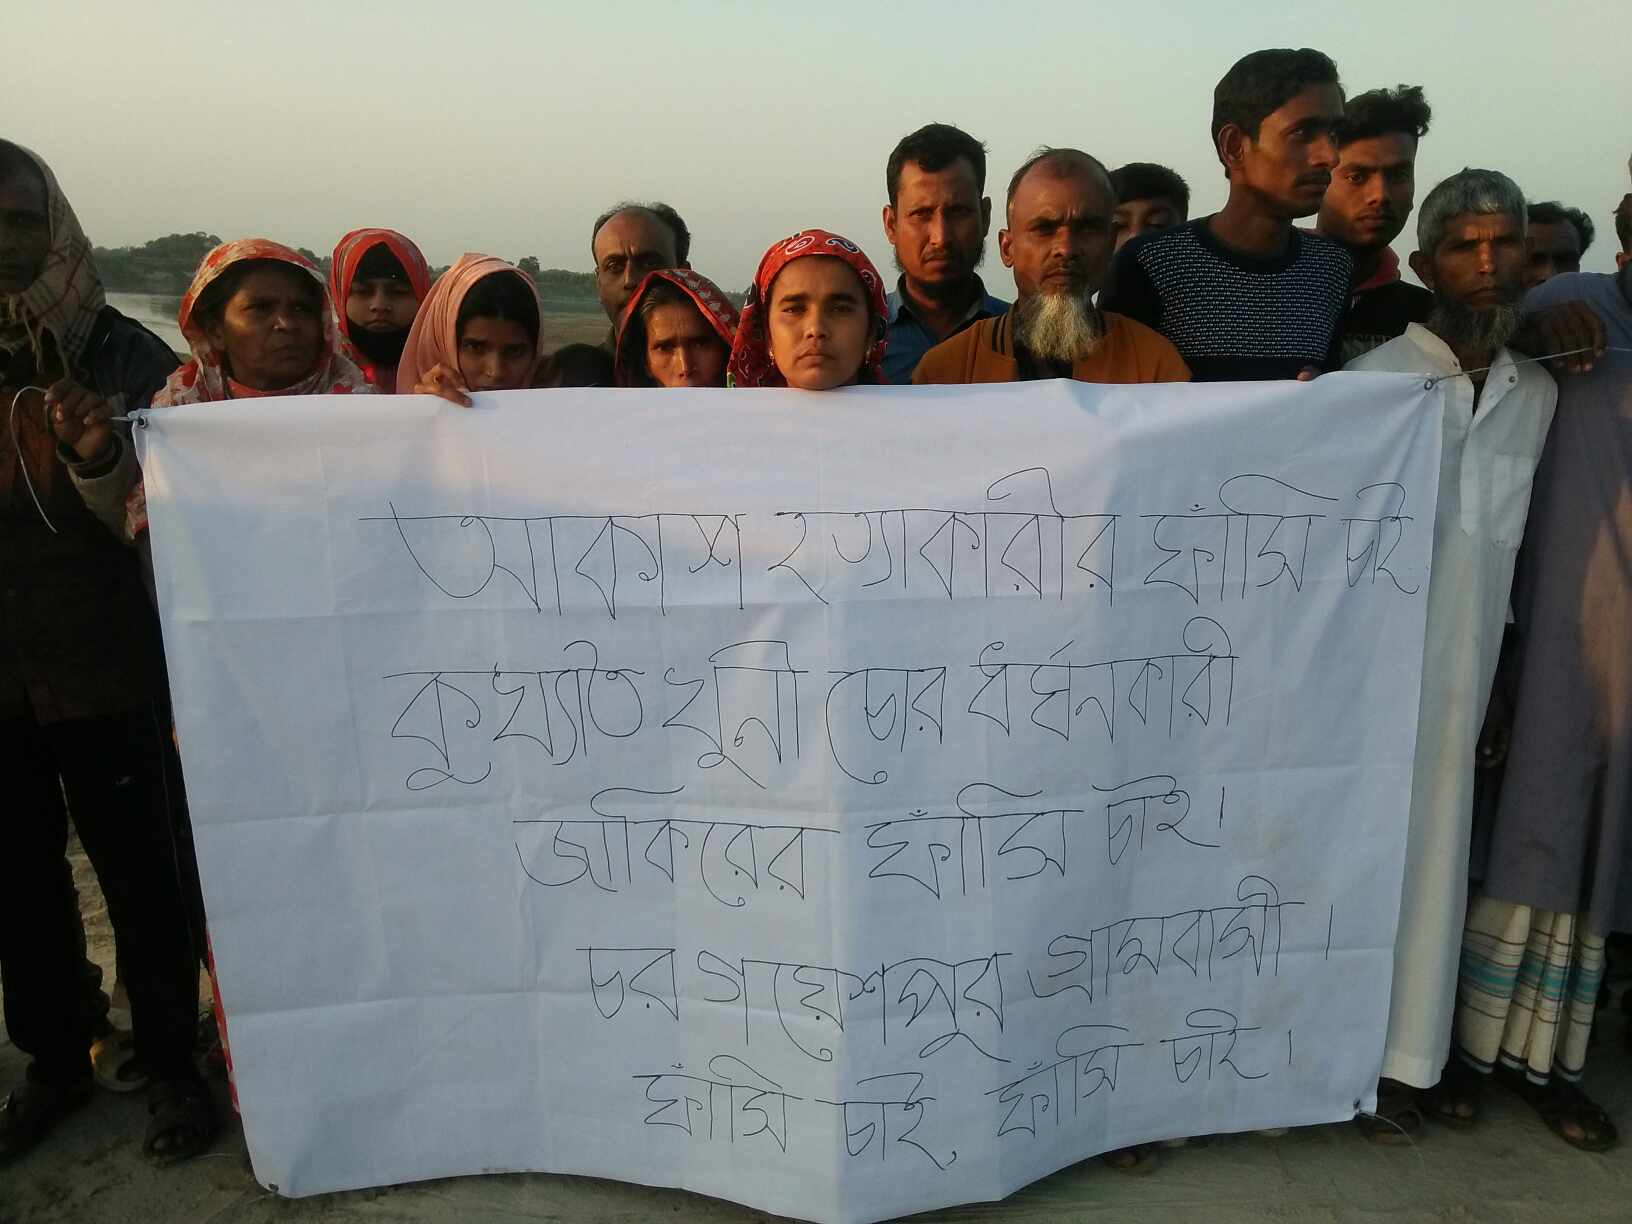 আকাশ হত্যাকারীর ফাঁসি চাই
কুখ্যাত খুনী চোর ধর্ষনকারী
জাকিরের ফাঁসি চাই।
চর গয়েশপুর গ্রামবাসী।
ফাঁসি চাই, ফাঁসি চাই।